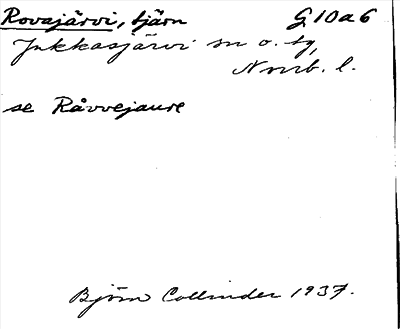 Rovajärvi, tjärn G.10a6
Jukkasjärvi sn o. tg,
Nmrb. l.
se Råvvejaure
Björn Collinder 1937.